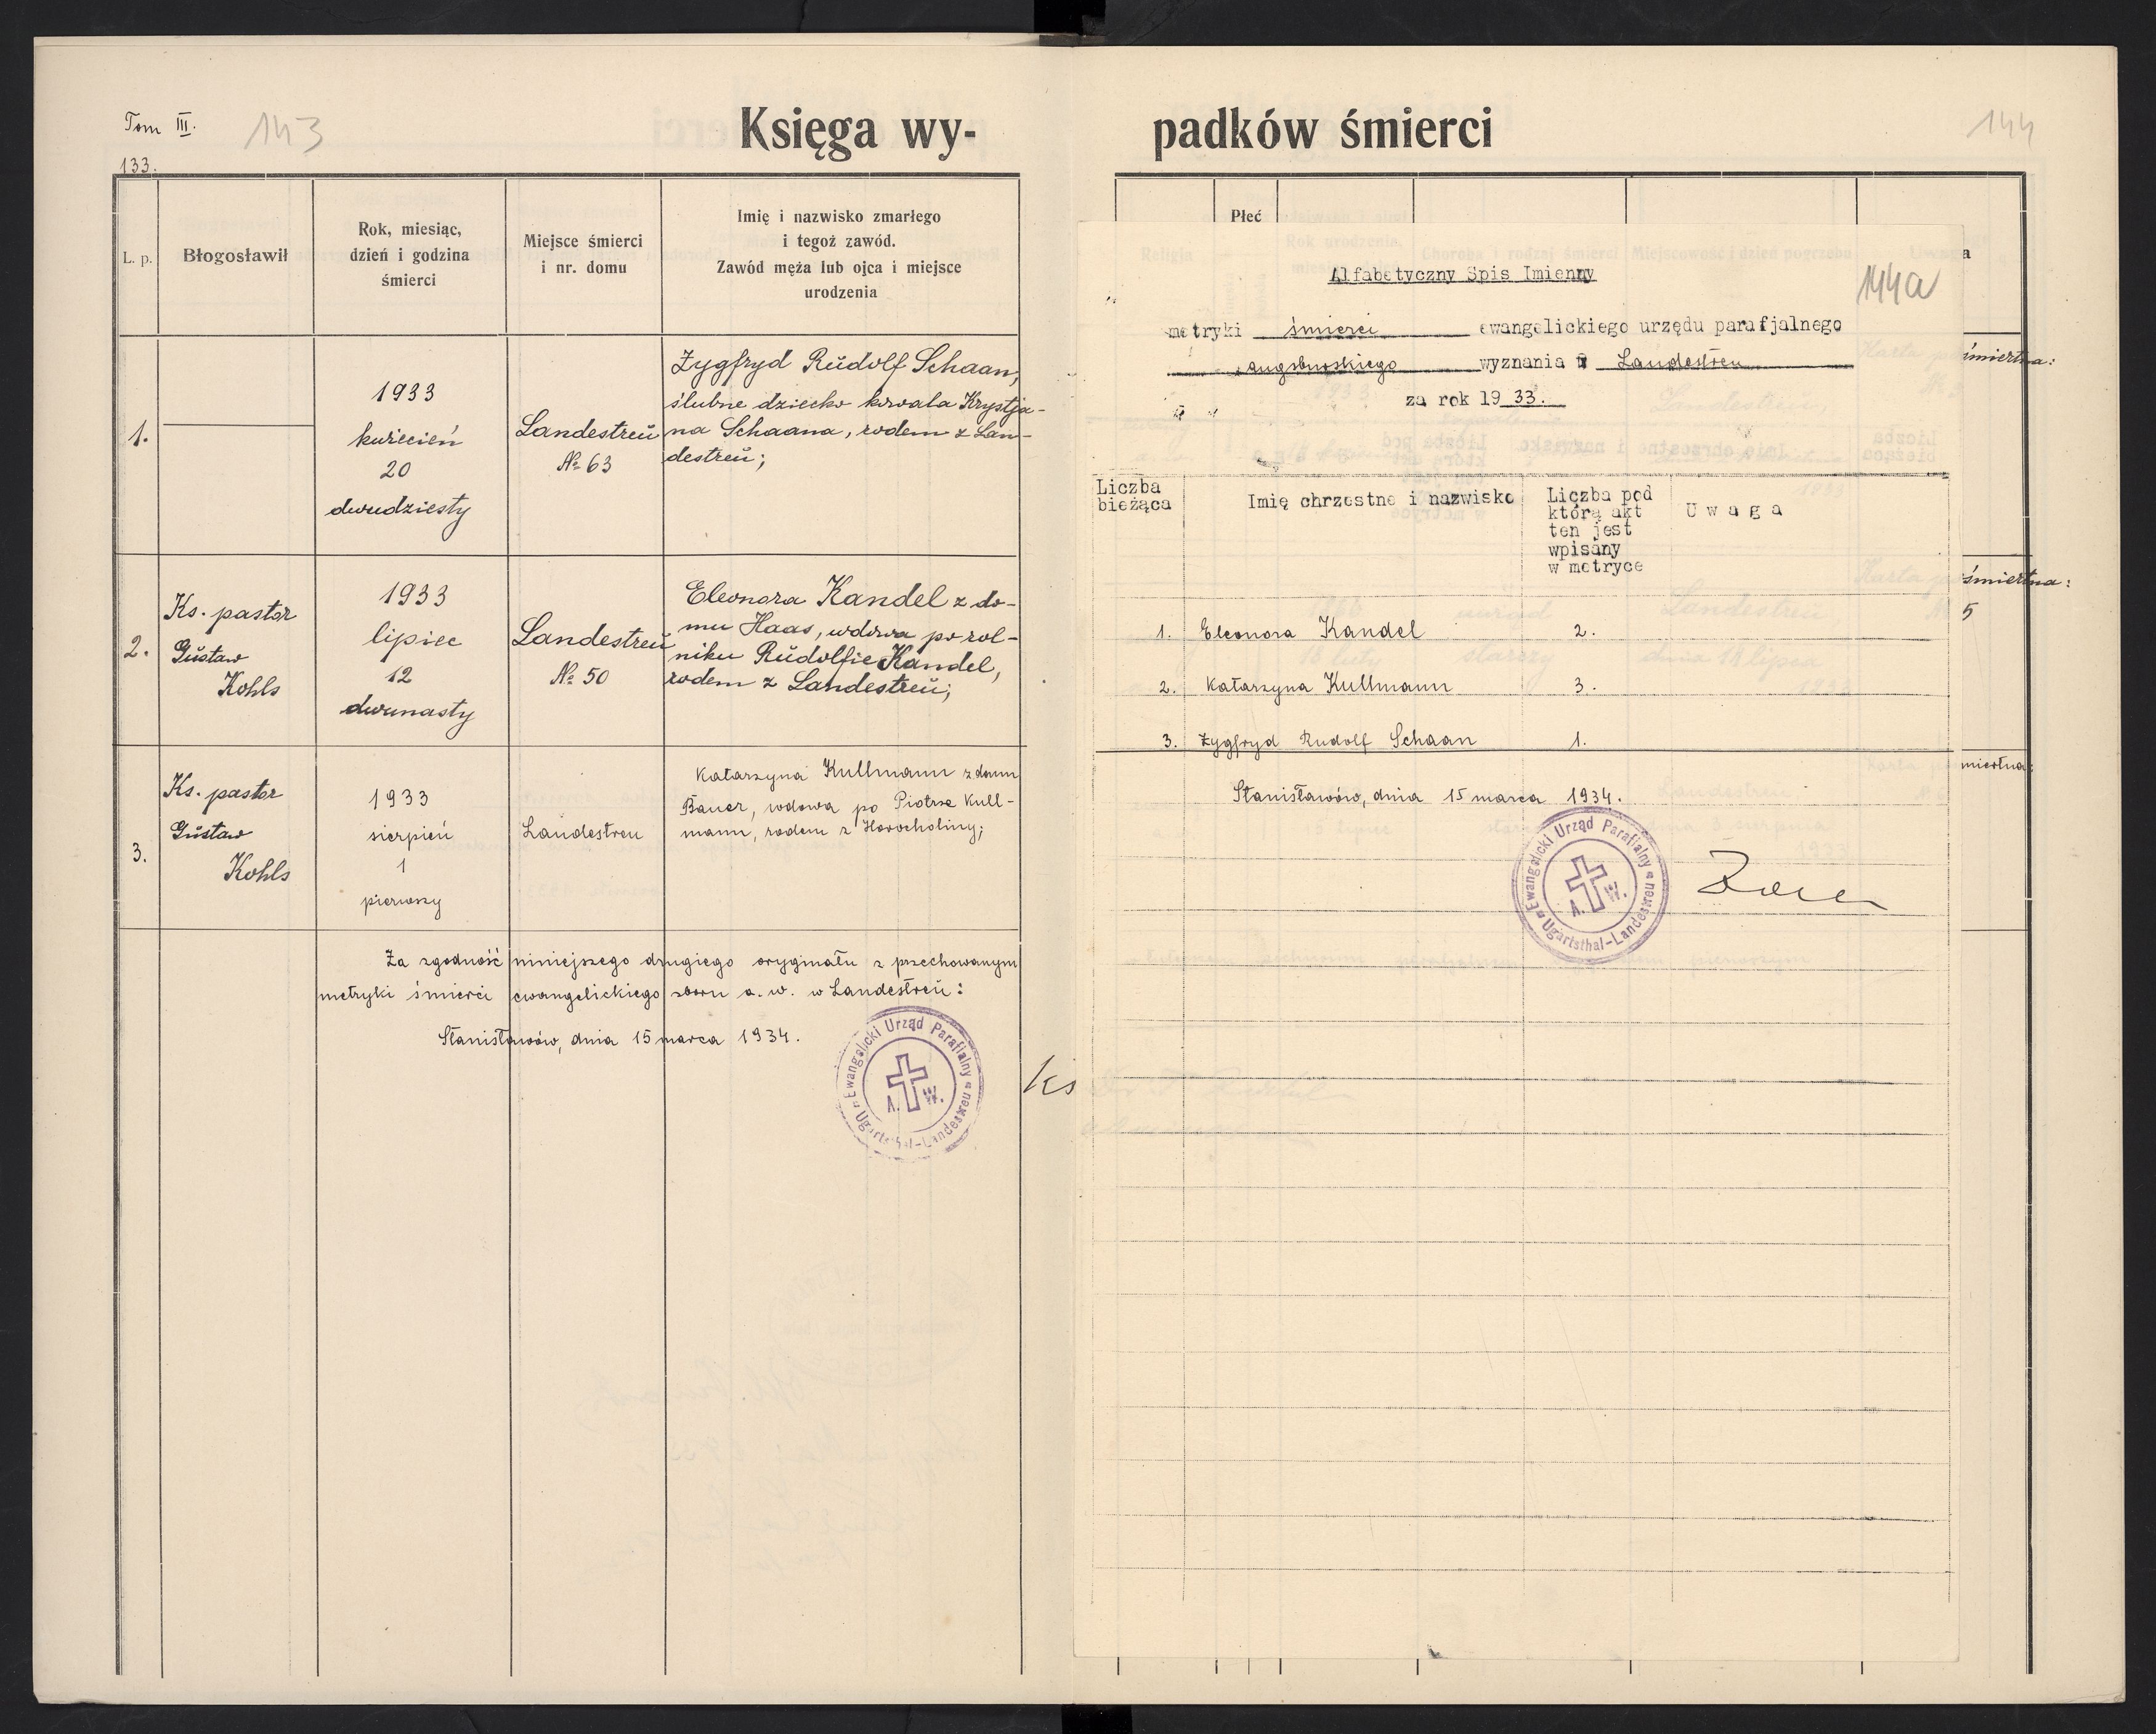 Tom III.
143
133.
Księga wy-
L. p.
Błogosławił
Rok, miesiąc,
dzień i godzina
śmierci
Miejsce śmierci
i nr. domu
Imię i nazwisko zmarłego
i tegoż zawód.
Zawód męża lub ojca i miejsce
urodzenia
1.
1933
kwiecień
20
dwudziesty
Landestreŭ
№ 63
Zygfryd Rŭdolf Schaan,
ślubne dziecko kowala Krystja-
na Schaana, rodem z Lan-
destreŭ;
2.
Ks. pastor
Gŭstaw
Kohls
1933
lipiec
12
dwunasty
Landestreŭ
№ 50
Eleonora Kandel z do-
mu Haas, wdowa po rol-
niku Rŭdolfie Kandel,
rodem z Landestreŭ;
3.
Ks. pastor
Gŭstaw
Kohls
1933
sierpień
1
pierwszy
Landestreu
Katarzyna Kullmann z domu
Bauer, wdowa po Piotrze Kull-
mann, rodem z Horocholiny;
Za zgodność niniejszego drugiego oryginału z przechowanym
metryki śmierci ewangelickiego zboru a. w. w Landestreŭ:
Stanisławów, dnia 15 marca 1934.
Ewangelicki Urząd Parafialny
A. W.
Ugartsthal-Landestreu
Ks
padków śmierci
144
Płeć
Religja
Rok urodzenia,
Choroba i rodzaj śmierci
Miejscowość i dzień pogrzebu
Uwaga
144a
Alfabetyczny Spis Imienny
metryki śmierci ewangelickiego urzędu parafjalnego
augsburskiego wyznania w Landestreu
za rok 19 33.
Liczba
bieżąca
Imię chrzestne i nazwisko
Liczba pod
którą akt
ten jest
wpisany
w metryce
Uwaga
1. Eleonora Kandel 2.
2. Katarzyna Kullmann 3.
3. Zygfryd Rudolf Schaan 1.
Stanisławów, dnia 15 marca 1934.
Ewangelicki Urząd Parafialny
A. W.
Ugartsthal-Landestreu
śmiertna:
śmiertna:
5
miertna: